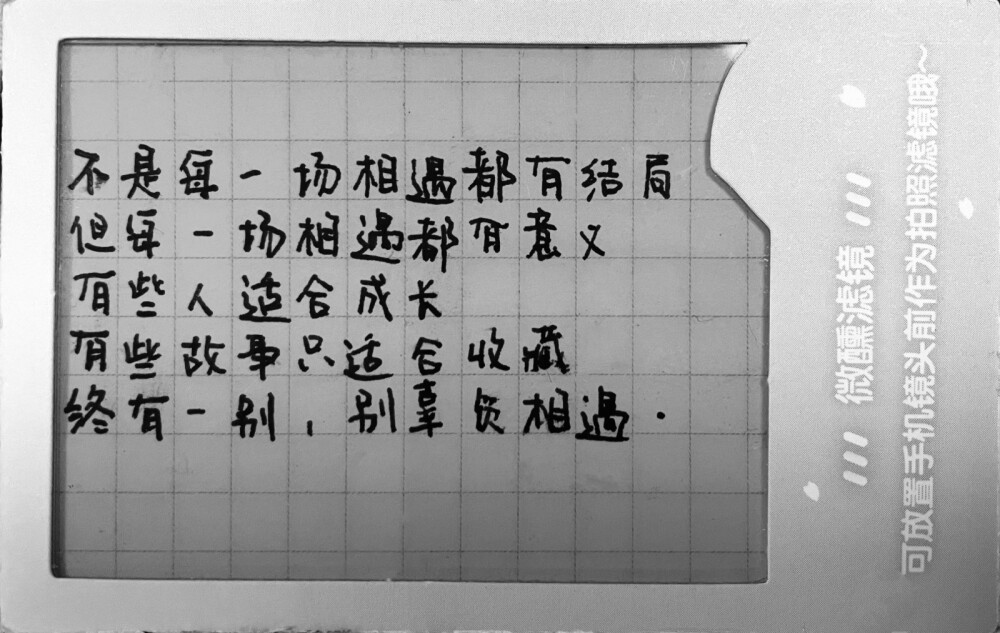 不是每一场相遇都有结局
但每一场相遇都有意义
有些人适合成长
有些故事只适合收藏
终有一别，别辜负相遇.
微醺滤镜
可放置手机镜头前作为拍照滤镜哦~